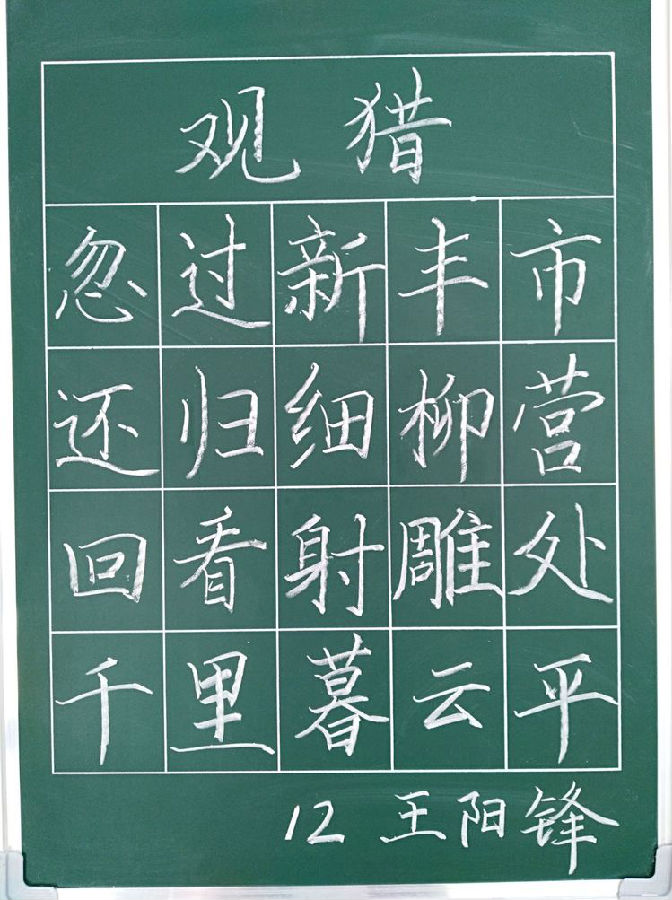 观猎
忽过新丰市
还归细柳营
回看射雕处
千里暮云平
12 王阳锋